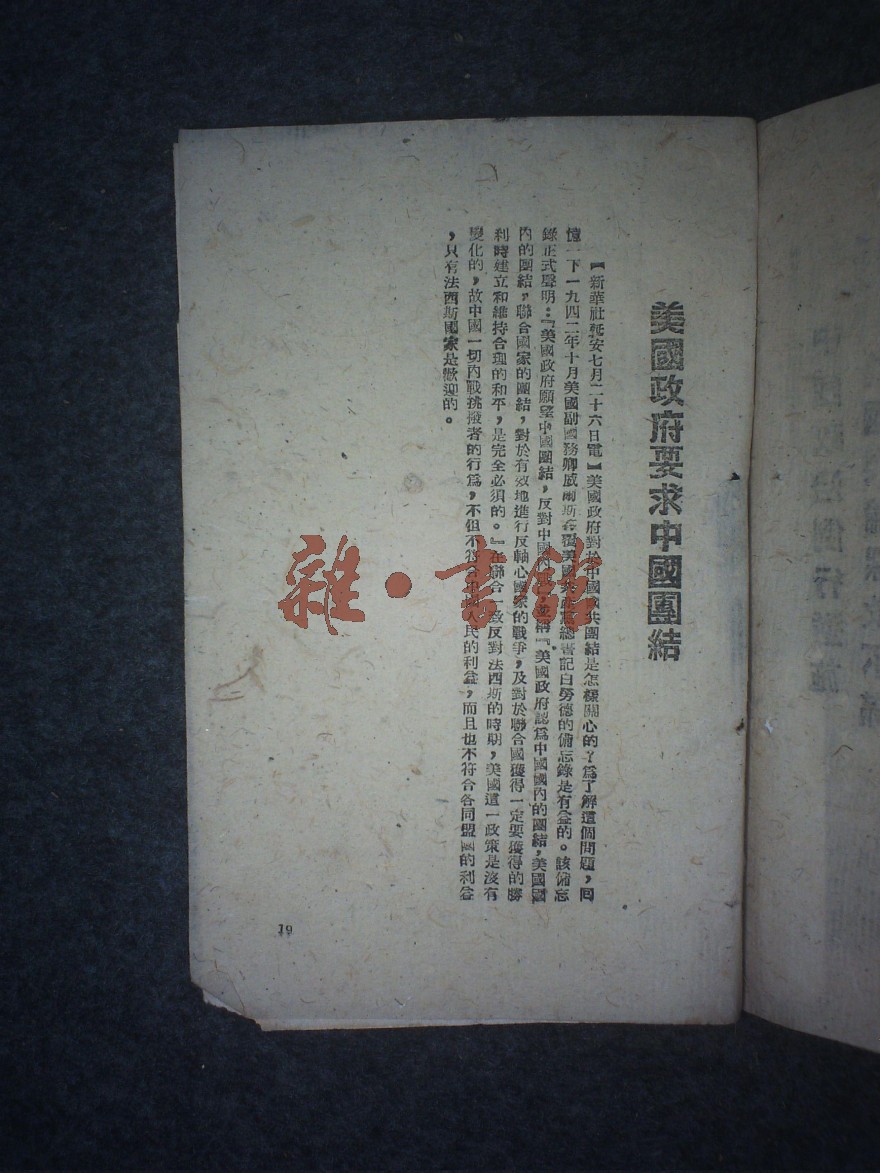 美國政府要求中國團結
【新華社延安七月二十六日電】美國政府對於中國國共團結是怎樣關心的？爲了解這個問題，回
憶一下一九四二年十月美國副國務卿威爾斯答覆美國共產黨總書記白勞德的備忘錄是有益的。該備忘
錄正式聲明：『美國政府願望中國團結，反對中國內 』 『美國政府認爲中國國內的團結，美國國
內的團結，聯合國家的團結，對於有效地進行反軸心國家的戰爭，及對於聯合國獲得一定要獲得的勝
利時建立和維持合理的和平，是完全必須的。』在聯合一致反對法西斯的時期，美國這一政策是沒有
變化的，故中國一切內戰挑撥者的行爲，不但不符合中國人民的利益，而且也不符合各同盟國的利益
，只有法西斯國家是歡迎的。
19
雜·書館